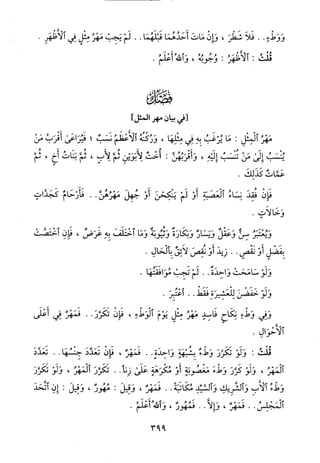 وَوَطْءٍ.. فَلَا شَطْرَ ، وَإِنْ مَاتَ أَحَدُهُمَا قَبْلَهُمَا.. لَمْ يَجِبْ مَهْرُ مِثْلٍ فِي ٱلْأَظْهَرِ .
قُلْتُ : ٱلْأَظْهَرُ : وُجُوبُهُ ، وَٱللهُ أَعْلَمُ .
فَصْلٌ
[في بيان مهر المثل]
مَهْرُ ٱلْمِثْلِ : مَا يُرْغَبُ بِهِ فِي مِثْلِهَا ، وَرُكْنُهُ ٱلْأَعْظَمُ نَسَبٌ ؛ فَيُرَاعَىٰ أَقْرَبُ مَنْ
يُنْسَبُ إِلَىٰ مَنْ تُنْسَبُ إِلَيْهِ ، وَأَقْرَبُهُنَّ : أُخْتٌ لِأَبَوَيْنِ ثُمَّ لِأَبٍ ، ثُمَّ بَنَاتُ أَخٍ ، ثُمَّ
عَمَّاتٌ كَذَلِكَ .
فَإِنْ فُقِدَ نِسَاءُ ٱلْعَصَبَةِ أَوْ لَمْ يُنْكَحْنَ أَوْ جُهِلَ مَهْرُهُنَّ.. فَأَرْحَامٌ كَجَدَّاتٍ
وَخَالَاتٍ .
وَيُعْتَبَرُ سِنٌّ وَعَقْلٌ وَيَسَارٌ وَبَكَارَةٌ وَثُيُوبَةٌ وَمَا ٱخْتَلَفَ بِهِ غَرَضٌ ، فَإِنِ ٱخْتَصَّتْ
بِفَضْلٍ أَوْ نَقْصٍ.. زِيدَ أَوْ نُقِصَ لَائِقٌ بِٱلْحَالِ .
وَلَوْ سَامَحَتْ وَاحِدَةٌ.. لَمْ تَجِبْ مُوَافَقَتُهَا .
وَلَوْ خَفَضْنَ لِلْعَشِيرَةِ فَقَطْ.. ٱعْتُبِرَ .
وَفِي وَطْءِ نِكَاحٍ فَاسِدٍ مَهْرُ مِثْلِ يَوْمِ ٱلْوَطْءِ ، فَإِنْ تَكَرَّرَ.. فَمَهْرٌ فِي أَعْلَى
ٱلْأَحْوَالِ .
قُلْتُ : وَلَوْ تَكَرَّرَ وَطْءٌ بِشُبْهَةٍ وَاحِدَةٍ.. فَمَهْرٌ ، فَإِنْ تَعَدَّدَ جِنْسُهَا.. تَعَدَّدَ
ٱلْمَهْرُ ، وَلَوْ كَرَّرَ وَطْءَ مَغْصُوبَةٍ أَوْ مُكْرَهَةٍ عَلَىٰ زِناً.. تَكَرَّرَ ٱلْمَهْرُ ، وَلَوْ تَكَرَّرَ
وَطْءُ ٱلْأَبِ وَٱلشَّرِيكِ وَٱلسَّيِّدِ مُكَاتَبَةً.. فَمَهْرٌ ، وَقِيلَ : مُهُورٌ ، وَقِيلَ : إِنِ ٱتَّحَدَ
ٱلْمَجْلِسُ.. فَمَهْرٌ ، وَإِلَّا.. فَمُهُورٌ ، وَٱللهُ أَعْلَمُ .
٣٩٩